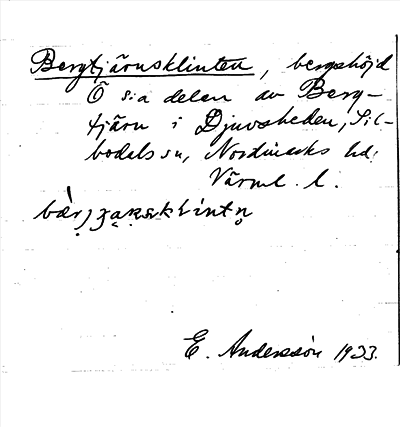 Bergtjärnsklinten, bergshöjd
Ö sia delen av Berg-
tjärn i Djuvsheden, Sil-
bodals sn, Nordmarks hd.
Värml. l.
E. Andersson 1933.